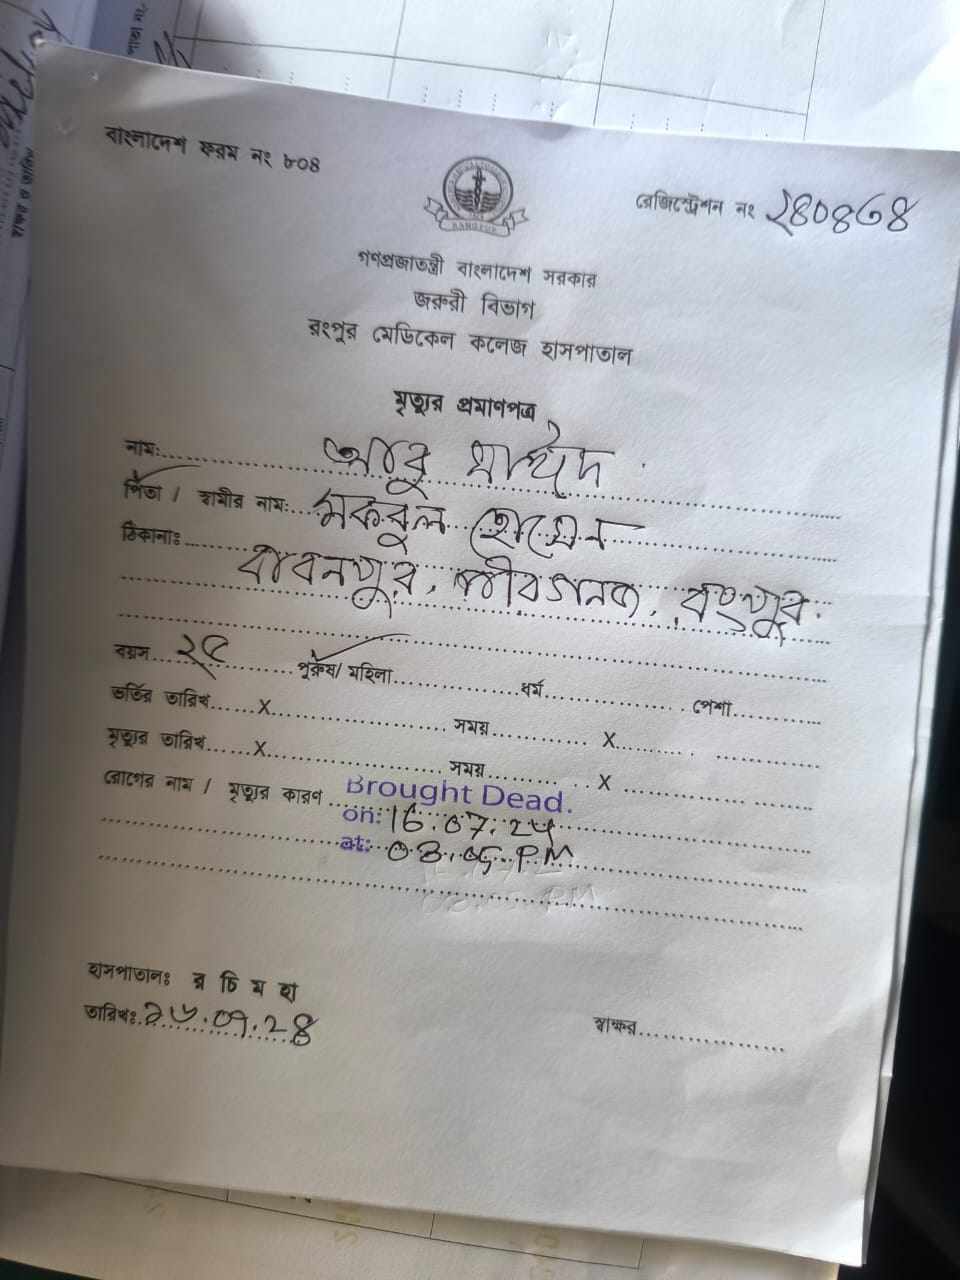 বাংলাদেশ ফরম নং ৮০৪
রেজিস্ট্রেশন নং ২৪০৪৬৪
RANGPUR
গণপ্রজাতন্ত্রী বাংলাদেশ সরকার
জরুরী বিভাগ
রংপুর মেডিকেল কলেজ হাসপাতাল
মৃত্যুর প্রমাণপত্র
নাম: আবু সাঈদ
পিতা / স্বামীর নাম: মকবুল হোসেন
ঠিকানাঃ বাবনপুর, পীরগনজ, রংপুর।
বয়স ২৫ পুরুষ/ মহিলা ধর্ম পেশা
ভর্তির তারিখ X সময় X
মৃত্যুর তারিখ X সময় X
রোগের নাম / মৃত্যুর কারণ Brought Dead.
on: 16.07.24
at: 03.05 PM
হাসপাতালঃ র চি ম হা
তারিখঃ ১৬.০৭.২৪
স্বাক্ষর